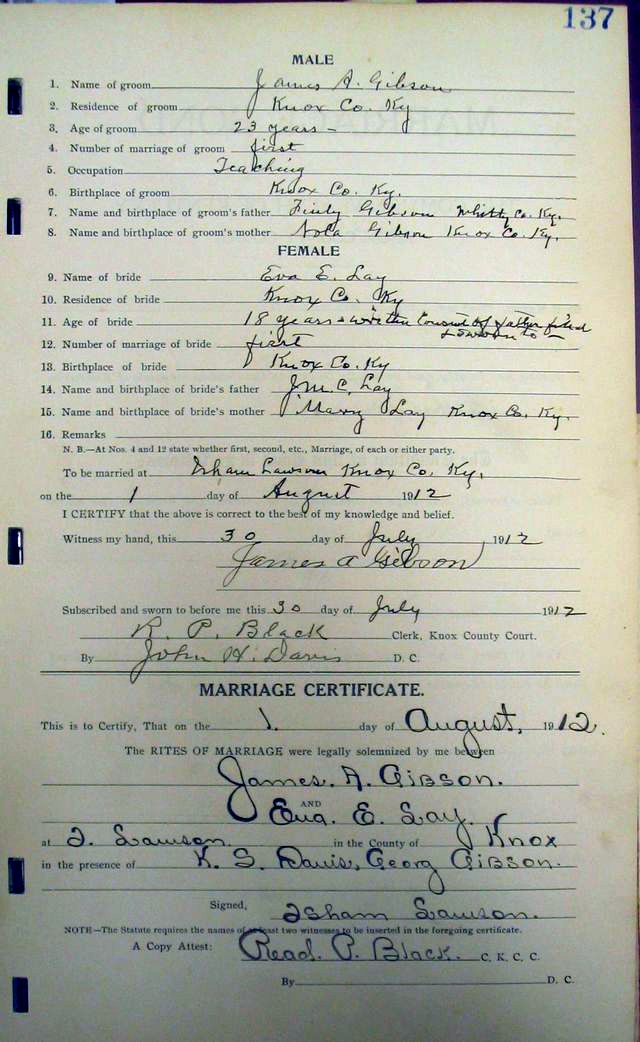 137
MALE
1. Name of groom James A. Gibson
2. Residence of groom Knox Co. Ky
3. Age of groom 23 years -
4. Number of marriage of groom first
5. Occupation Teaching
6. Birthplace of groom Knox Co. Ky.
7. Name and birthplace of groom's father Finly Gibson Whitly Co. Ky.
8. Name and birthplace of groom's mother Nola Gibson Knox Co. Ky.
FEMALE
9. Name of bride Eva E. Lay
10. Residence of bride Knox Co. Ky
11. Age of bride 18 years & written Consent of father filed
12. Number of marriage of bride first
13. Birthplace of bride Knox Co. Ky
14. Name and birthplace of bride's father J.M.C. Lay
15. Name and birthplace of bride's mother Mary Lay Knox Co. Ky.
16. Remarks
N. B.—At Nos. 4 and 12 state whether first, second, etc., Marriage, of each or either party.
To be married at Isham Lawson Knox Co. Ky.
on the 1 day of August 1912
I CERTIFY that the above is correct to the best of my knowledge and belief.
Witness my hand, this 30 day of July, 1912
James A Gibson
Subscribed and sworn to before me this 30 day of July 1912
R. P. Black Clerk, Knox County Court.
By John H. Davis D. C.
MARRIAGE CERTIFICATE.
This is to Certify, That on the 1. day of August, 1912.
The RITES OF MARRIAGE were legally solemnized by me between
James. A. Gibson.
AND
Eva. E. Lay.
at I. Lawson. in the County of Knox
in the presence of K. S. Davis, Georg Gibson.
Signed, Isham Lawson.
NOTE—The Statute requires the names of at least two witnesses to be inserted in the foregoing certificate.
A Copy Attest: Read. P. Black. C. K. C. C.
By D. C.